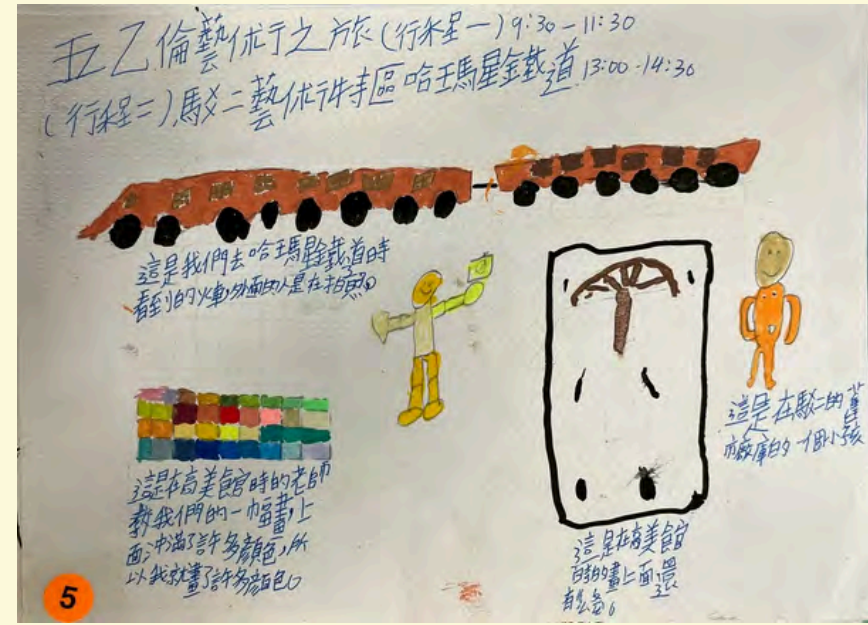 五乙倫藝術之旅(行程一)9:30-11:30
(行程二)駁二藝術特區哈瑪星鐵道13:00-14:30
這是我們去哈瑪星鐵道時
看到的火車,外面的人是在拍照。
這是在高美館時的老師
教我們的一幅畫,上
面沖滿了許多顏色,所
以我就畫了許多顏色。
這是在高美館
時的畫上面還
這是在駁二的舊
廠庫的一個小孩
5